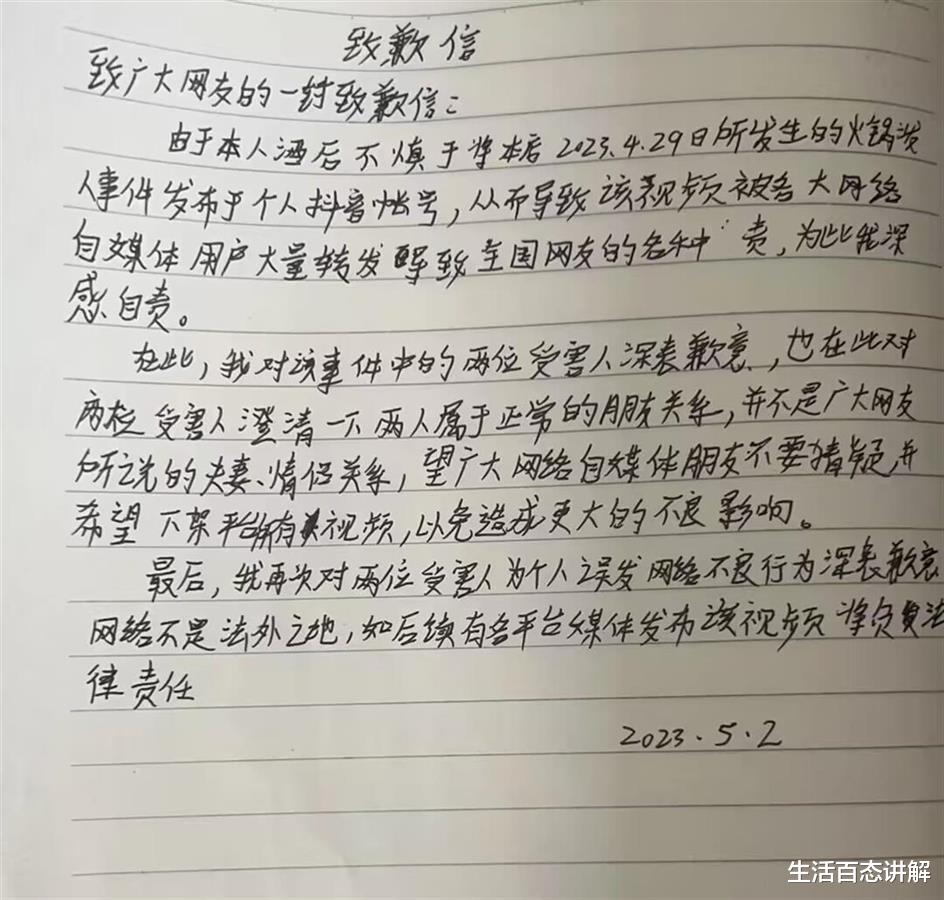 致歉信
致广大网友的一封致歉信:
由于本人酒后不慎于将本店2023.4.29日所发生的火锅泼
人事件发布于个人抖音帐号,从而导致该视频被各大网络
自媒体用户大量转发导致全国网友的各种 责,为此我深
感自责。
在此,我对该事件中的两位受害人深表歉意,也在此对
两位受害人澄清一下两人属于正常的朋友关系,并不是广大网友
所说的夫妻、情侣关系,望广大网络自媒体朋友不要猜疑,并
希望下架平台所有视频,以免造成更大的不良影响。
最后,我再次对两位受害人为个人误发网络不良行为深表歉意
网络不是法外之地,如后续有各平台媒体发布该视频将负责法
律责任
2023.5.2
生活百态讲解